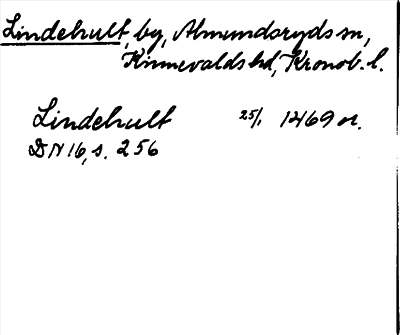 Lindehult, by, Almundsryds sn,
Kinnevalds hd, Kronob. l.
Lindehult 25/1 1469 or.
DN 16, s. 256